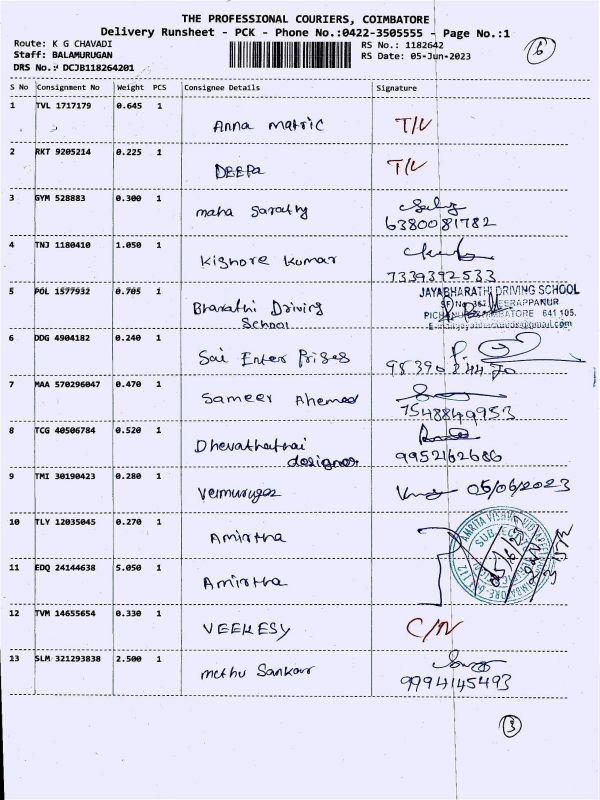 THE PROFESSIONAL COURIERS, COIMBATORE
Delivery Runsheet - PCK - Phone No.:0422-3505555 - Page No.:1
Route: K G CHAVADI RS No.: 1182642 6
Staff: BALAMURUGAN RS Date: 05-Jun-2023
DRS No.: DCJB118264201
S No Consignment No Weight PCS Consignee Details Signature
1 TVL 1717179 0.645 1
Anna Matric T/L
2 RKT 9205214 0.225 1
DEEPA T/L
3 GYM 528883 0.300 1
maha Sarathy
6380081782
4 TNJ 1180410 1.050 1
Kishore Kumar
7339392533
5 POL 1577932 0.705 1 JAYABHARATHI DRIVING SCHOOL
Bharathi Driving
School COIMBATORE 641 105.
6 DDG 4904182 0.240 1
Sai Enter Prises
7 MAA 570296047 0.470 1
Sameer Ahemed
7548849953
8 TCG 40506784 0.520 1
Dhevathathai
designer 9952162686
9 TMI 30190423 0.280 1
05/06/2023
10 TLY 12035045 0.270 1
Amirtha
11 EDQ 24144638 5.050 1
Amirtha
12 TVM 14655654 0.330 1
VEEKESY C/N
13 SLM 321293838 2.500 1
methu Sankar
9994145493
3